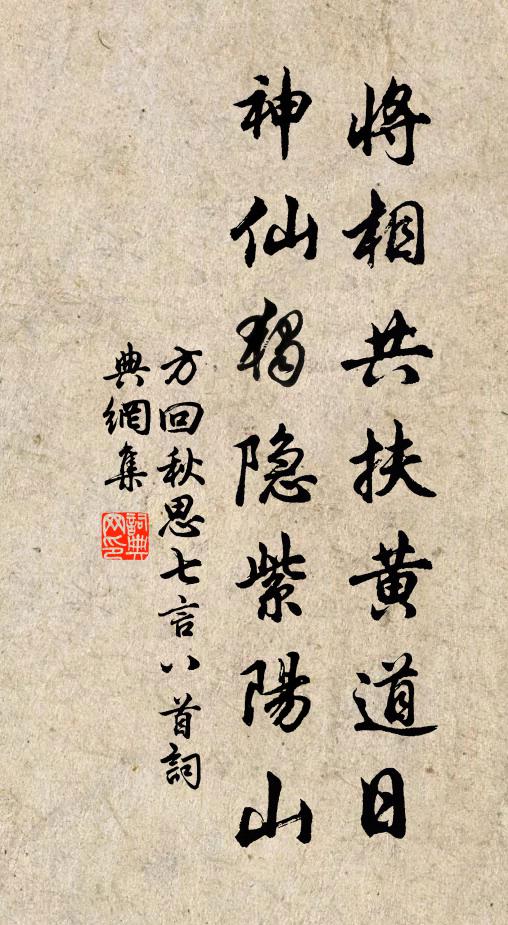 將相共扶黃道日
神仙獨隐紫陽山
方回秋思七言八首詞
典網集
詞典
网印